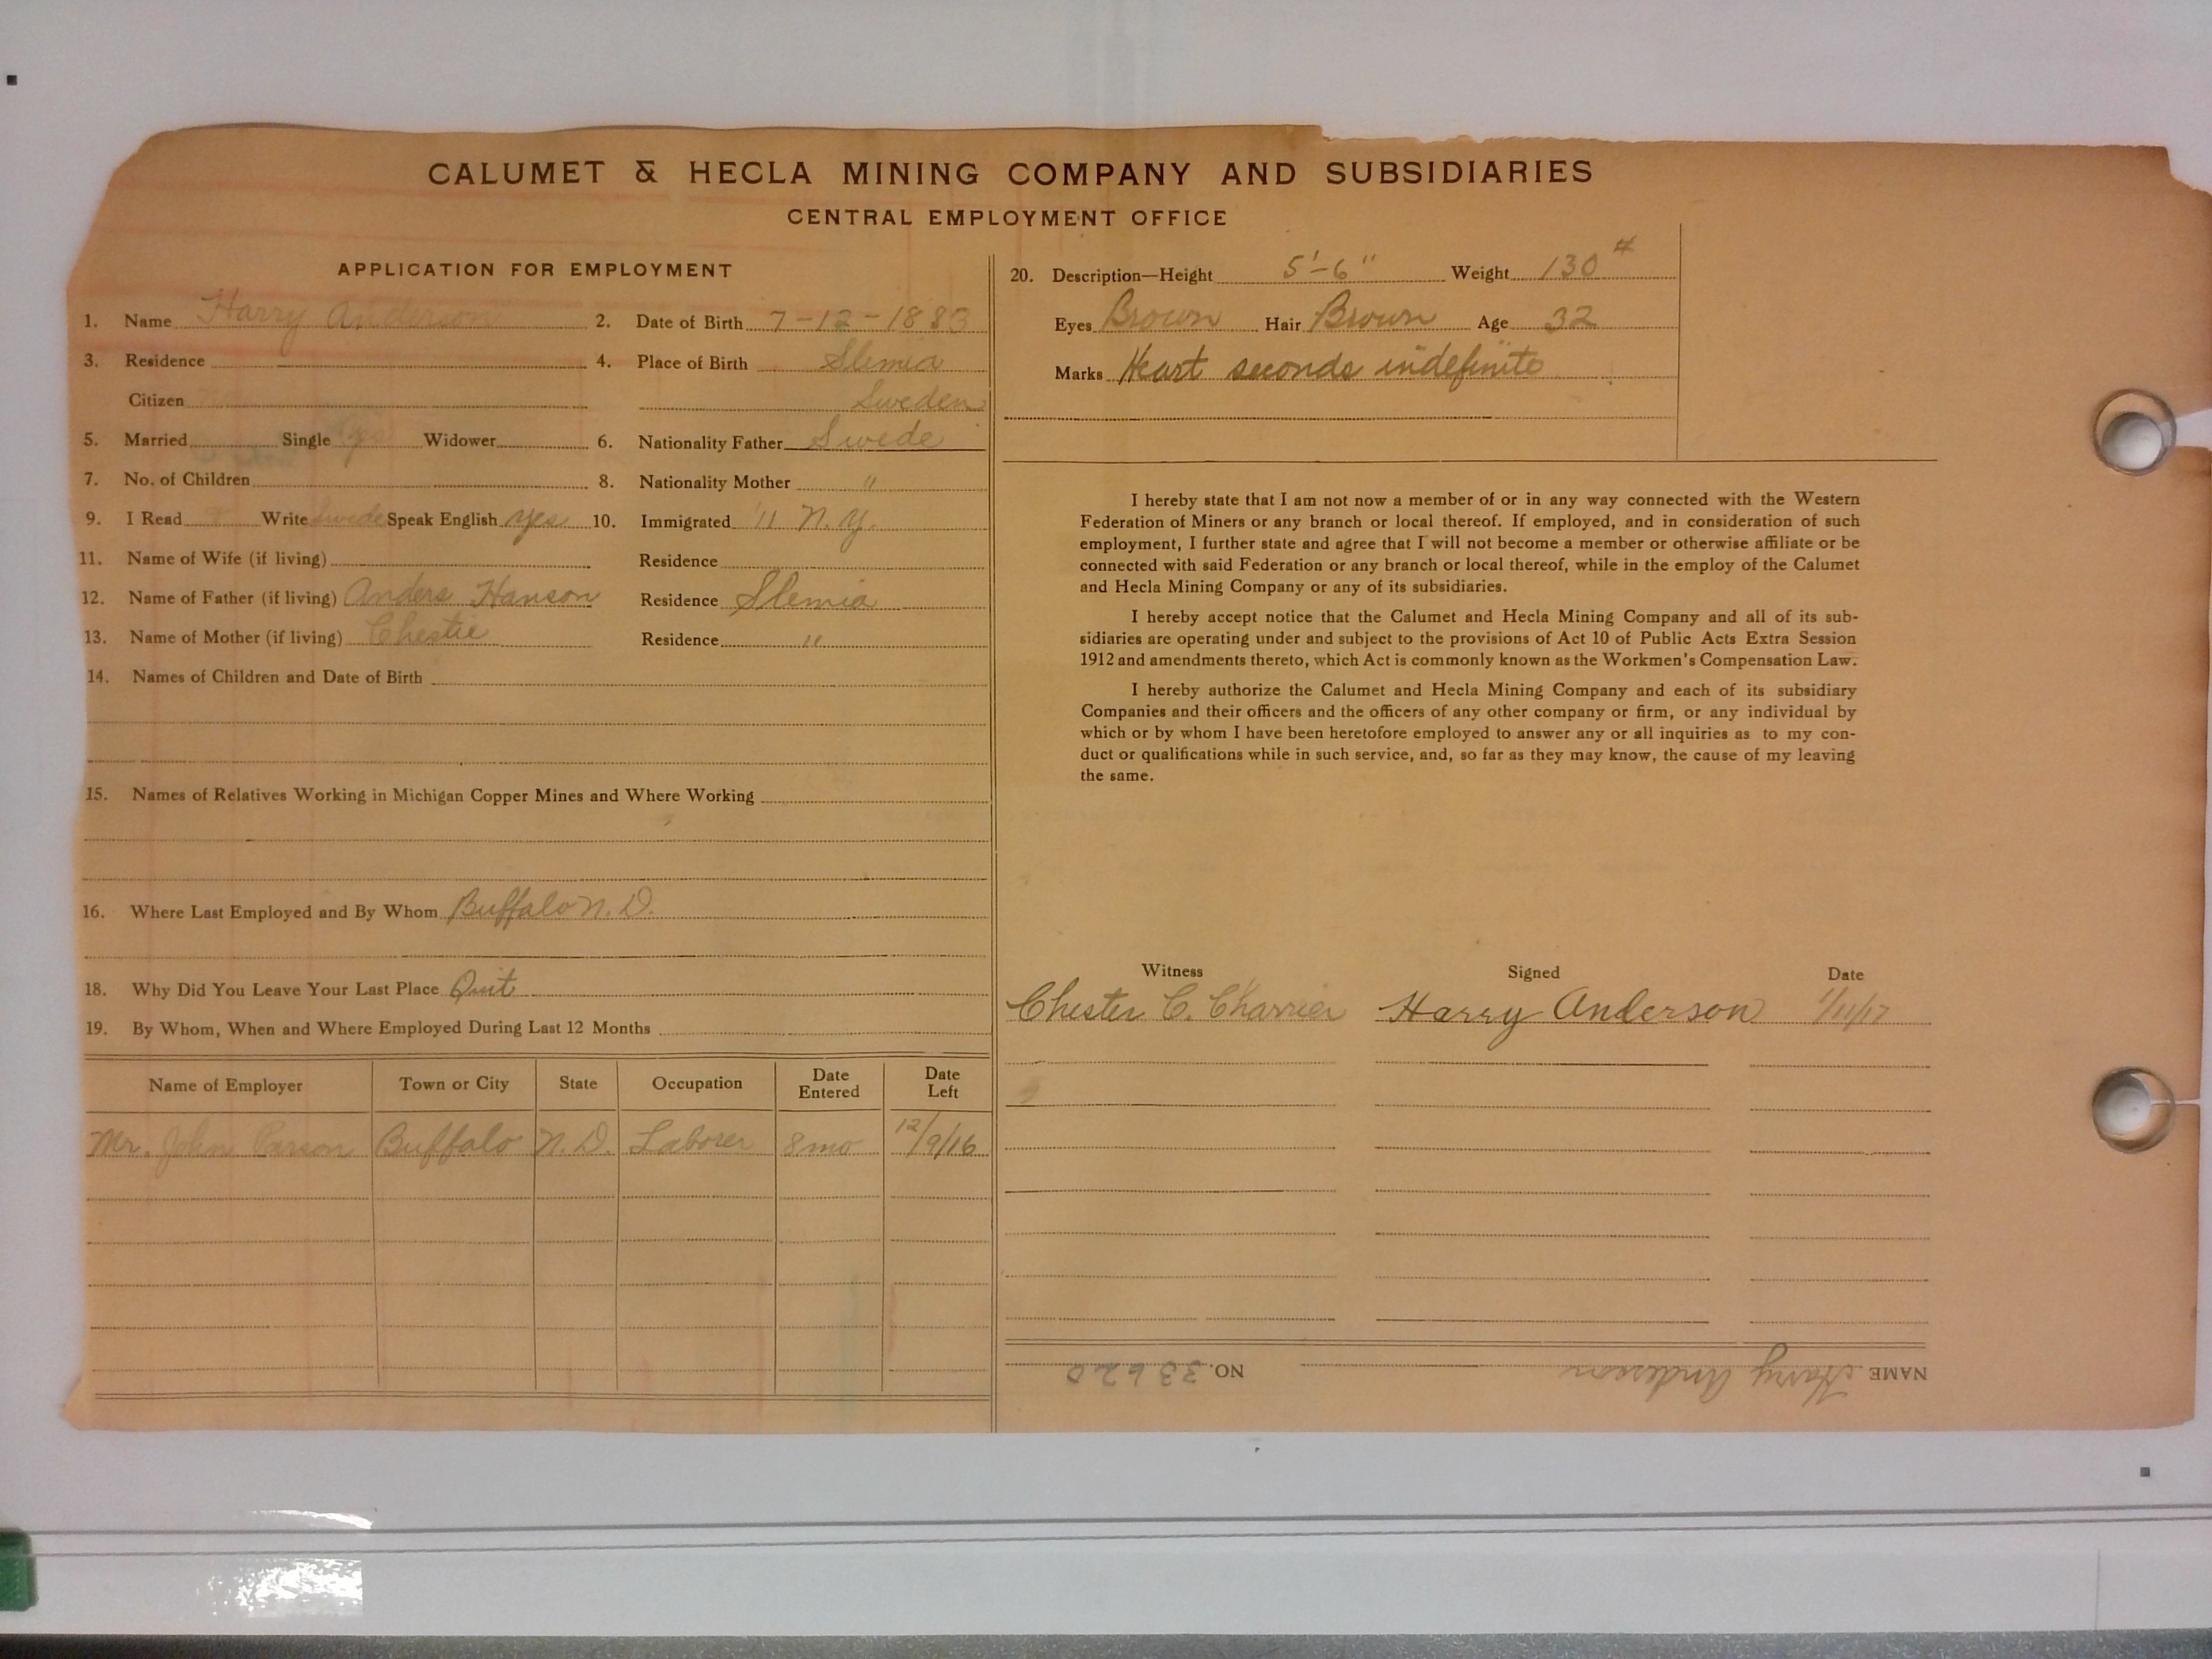 CALUMET & HECLA MINING COMPANY AND SUBSIDIARIES
CENTRAL EMPLOYMENT OFFICE
APPLICATION FOR EMPLOYMENT
1. Name Harry Anderson 2. Date of Birth 7-12-1883
3. Residence 4. Place of Birth Slemia
Citizen Sweden
5. Married Single yes Widower 6. Nationality Father Swede
7. No. of Children 8. Nationality Mother "
9. I Read Write Swede Speak English yes 10. Immigrated '11 N.Y.
11. Name of Wife (if living) Residence
12. Name of Father (if living) Anders Hanson Residence Slemia
13. Name of Mother (if living) Chestie Residence "
14. Names of Children and Date of Birth
15. Names of Relatives Working in Michigan Copper Mines and Where Working
16. Where Last Employed and By Whom Buffalo N.D.
18. Why Did You Leave Your Last Place Quit
19. By Whom, When and Where Employed During Last 12 Months
Name of Employer Town or City State Occupation Date Entered Date Left
Mr. John Buffalo N.D. Laborer 8 mo 12/9/16
20. Description—Height 5'-6" Weight 130 #
Eyes Brown Hair Brown Age 32
Marks Heart seconds indefinite
I hereby state that I am not now a member of or in any way connected with the Western
Federation of Miners or any branch or local thereof. If employed, and in consideration of such
employment, I further state and agree that I will not become a member or otherwise affiliate or be
connected with said Federation or any branch or local thereof, while in the employ of the Calumet
and Hecla Mining Company or any of its subsidiaries.
I hereby accept notice that the Calumet and Hecla Mining Company and all of its sub-
sidiaries are operating under and subject to the provisions of Act 10 of Public Acts Extra Session
1912 and amendments thereto, which Act is commonly known as the Workmen's Compensation Law.
I hereby authorize the Calumet and Hecla Mining Company and each of its subsidiary
Companies and their officers and the officers of any other company or firm, or any individual by
which or by whom I have been heretofore employed to answer any or all inquiries as to my con-
duct or qualifications while in such service, and, so far as they may know, the cause of my leaving
the same.
Witness Signed Date
Chester C. Charrier Harry Anderson 1/11/17
NAME Harry Anderson NO. 33620